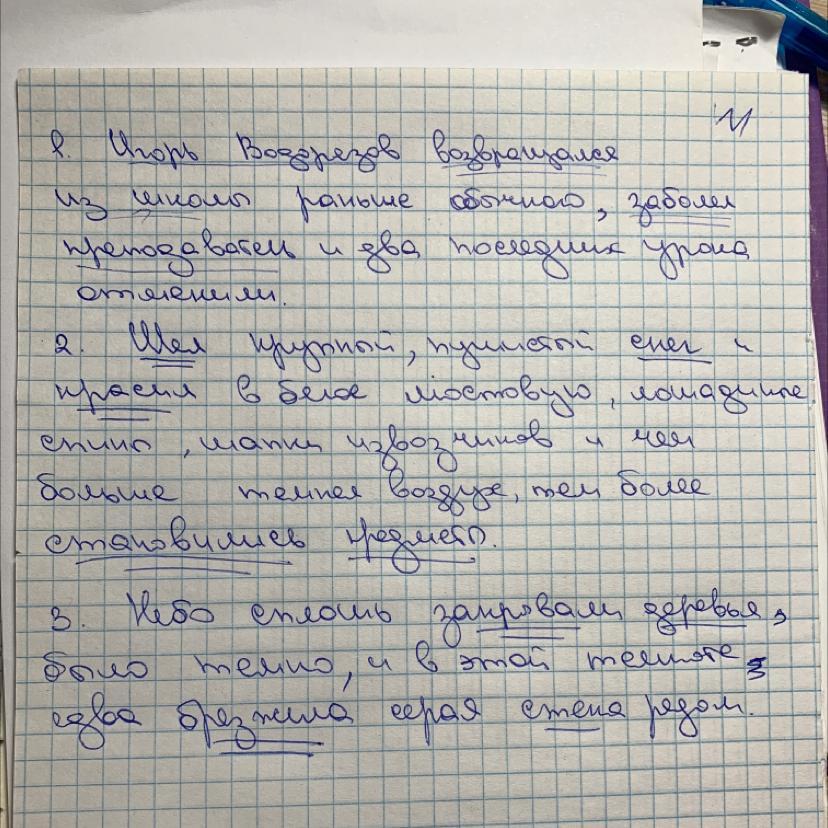 М
1. Игорь Воздрезов возвращался
из школы раньше обычного, заболел
преподаватель и два последних урока
отменили.
2. Шел крупный, пушистый снег и
красил в белое мостовую, лошадиные
спины, шапки извозчиков и чем
больше темнел воздух, тем более
становились предметы.
3. Небо сплошь закрывали деревья,
было темно, и в этой темноте
едва брезжила серая стена рядом.